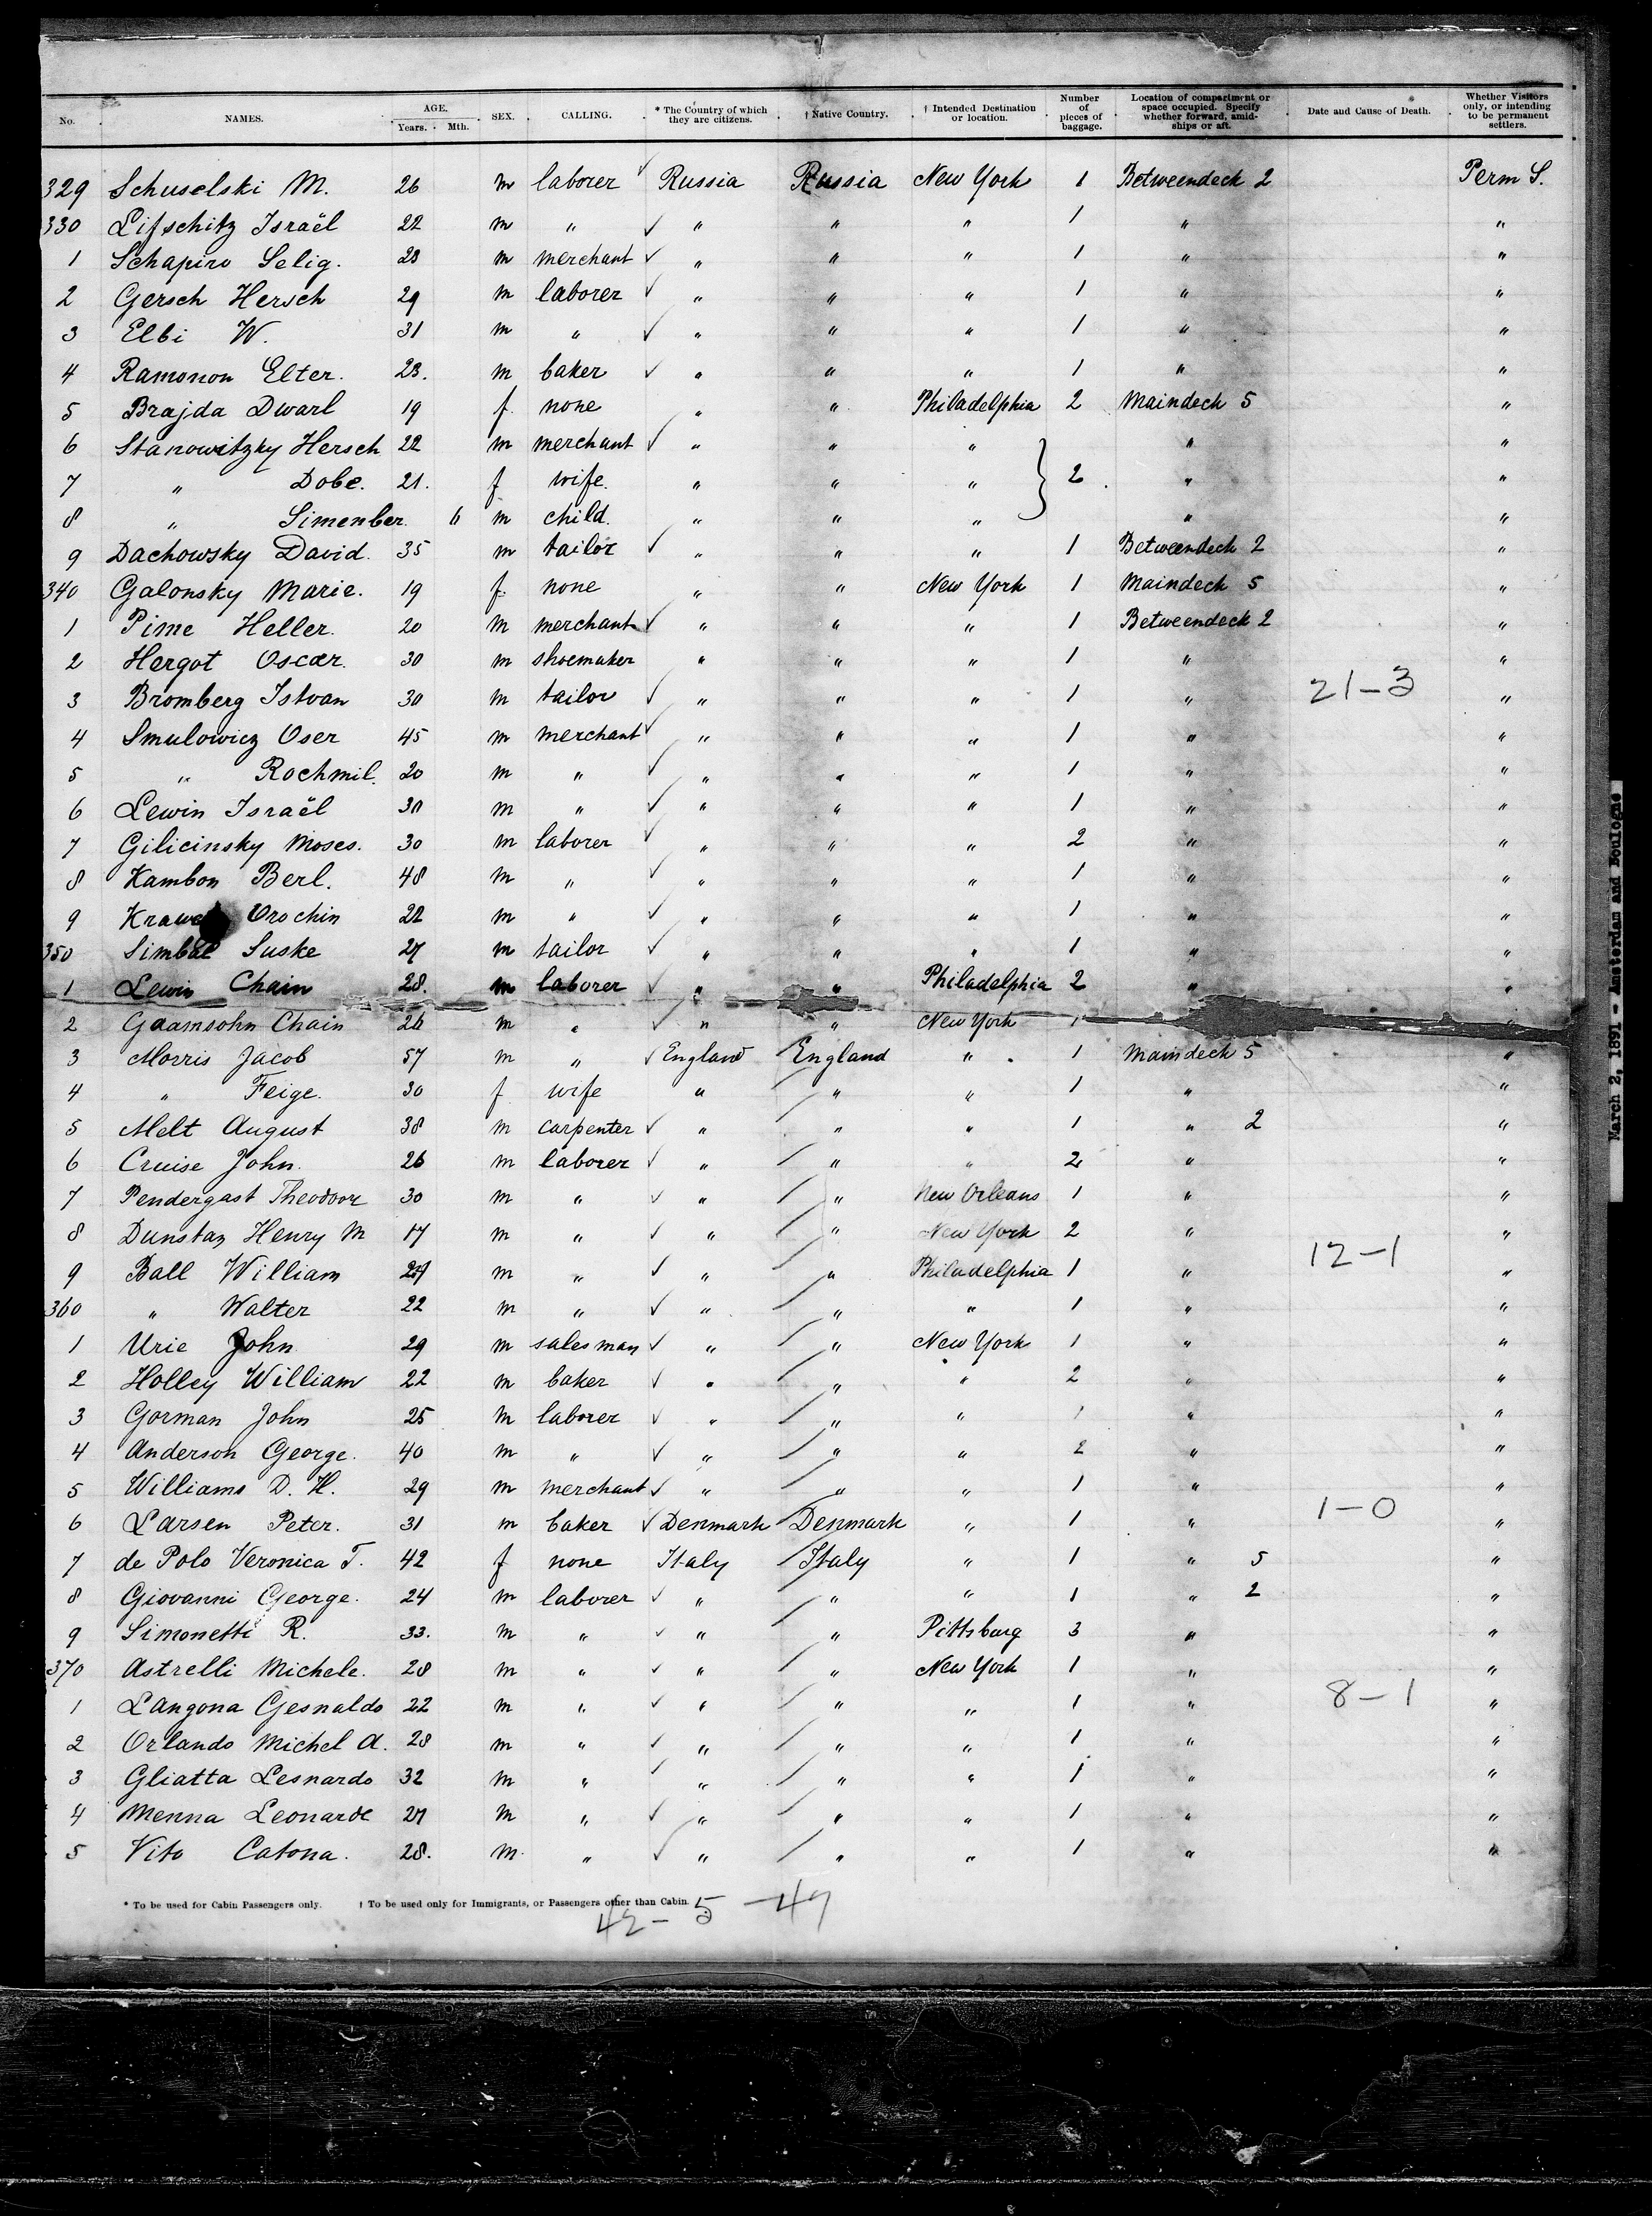 No. NAMES. AGE. Years. Mth. SEX. CALLING. * The Country of which they are citizens. † Native Country. † Intended Destination or location. Number of pieces of baggage. Location of compartment or space occupied. Specify whether forward, amidships or aft. Date and Cause of Death. Whether Visitors only, or intending to be permanent settlers.
329 Schuselski M. 26 m laborer ✓ Russia Russia New York 1 Betweendeck 2 Perm S.
330 Lifschitz Israël 22 m " ✓ " " " 1 " "
1 Schapiro Selig. 23 m merchant ✓ " " " 1 " "
2 Gersch Hersch 29 m laborer ✓ " " " 1 " "
3 Elbi W. 31 m " ✓ " " " 1 " "
4 Ramonon Elter. 23. m baker ✓ " " " 1 " "
5 Brajda Dwarl 19 f. none " " Philadelphia 2 Maindeck 5 "
6 Stanowitzky Hersch 22 m merchant ✓ " " " " "
7 " Dobe. 21. f. wife. " " " } 2 " "
8 " Simenber. 6 m child. " " " " "
9 Dachowsky David. 35 m tailor ✓ " " " 1 Betweendeck 2 "
340 Galonsky Marie. 19 f. none " " New York 1 Maindeck 5 "
1 Pime Heller. 20 m merchant ✓ " " " 1 Betweendeck 2 "
2 Hergot Oscar. 30 m shoemaker " " " 1 " "
3 Bromberg Istvan 30 m tailor ✓ " " " 1 " 21-3 "
4 Smulowicz Oser 45 m merchant ✓ " " " 1 " "
5 " Rochmil. 20 m " ✓ " " " 1 " "
6 Lewin Israël 30 m " ✓ " " " 1 " "
7 Gilicinsky Moses. 30 m laborer ✓ " " " 2 " "
8 Kambon Berl. 48 m " ✓ " " " 1 " "
9 Orochin 22 m " ✓ " " " 1 " "
350 Simbal Suske 27 m tailor ✓ " " " 1 " "
1 Lewin Chain 28. m laborer ✓ " " Philadelphia 2 " "
2 Gaamsohn Chain 26 m " ✓ " " New York 1 "
3 Morris Jacob 57 m " ✓ England England " 1 Maindeck 5 "
4 " Feige. 30 f wife " " " 1 " "
5 Melt August 38 m carpenter ✓ " " " 1 " 2 "
6 Cruise John. 26 m laborer ✓ " " " 2 " "
7 Pendergast Theodoor 30 m " ✓ " " New Orleans 1 " "
8 Dunstan Henry M 17 m " ✓ " " New York 2 " "
9 Ball William 24 m " ✓ " " Philadelphia 1 " 12-1 "
360 " Walter 22 m " ✓ " " " 1 " "
1 Urie John 29 m salesman ✓ " " New York 1 " "
2 Holley William 22 m baker ✓ " " " 2 " "
3 Gorman John 25 m laborer ✓ " " " 1 " "
4 Anderson George. 40 m " ✓ " " " 2 " "
5 Williams D. H. 29 m merchant ✓ " " " 1 " "
6 Larsen Peter. 31 m baker ✓ Denmark Denmark " 1 " 1-0 "
7 de Polo Veronica T. 42 f none Italy Italy " 1 " 5 "
8 Giovanni George. 24 m laborer ✓ " " " 1 " 2 "
9 Simonetti R. 33. m " ✓ " " Pittsburg 3 " "
370 Astrelli Michele. 28 m " ✓ " " New York 1 " "
1 Langona Gesnaldo 22 m " ✓ " " " 1 " 8-1 "
2 Orlando Michel A. 28 m " ✓ " " " 1 " "
3 Gliatta Lesnardo 32 m " ✓ " " " 1 " "
4 Menna Leonarde 27 m " ✓ " " " 1 " "
5 Vito Catona. 28. m. " ✓ " " " 1 " "
* To be used for Cabin Passengers only. † To be used only for Immigrants, or Passengers other than Cabin.
42-5-47
March 2, 1891 - Amsterdam and Boulogne